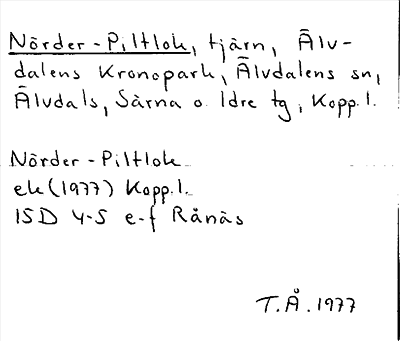 Nörder-Piltlok, tjärn, Älv-
dalens Kronopark, Älvdalens sn,
Älvdals, Särna o. Idre tg, Kopp.l.
Nörder-Piltlok
ek(1977) Kopp.l.
15D 4-5 e-f Rånäs
T.Å. 1977